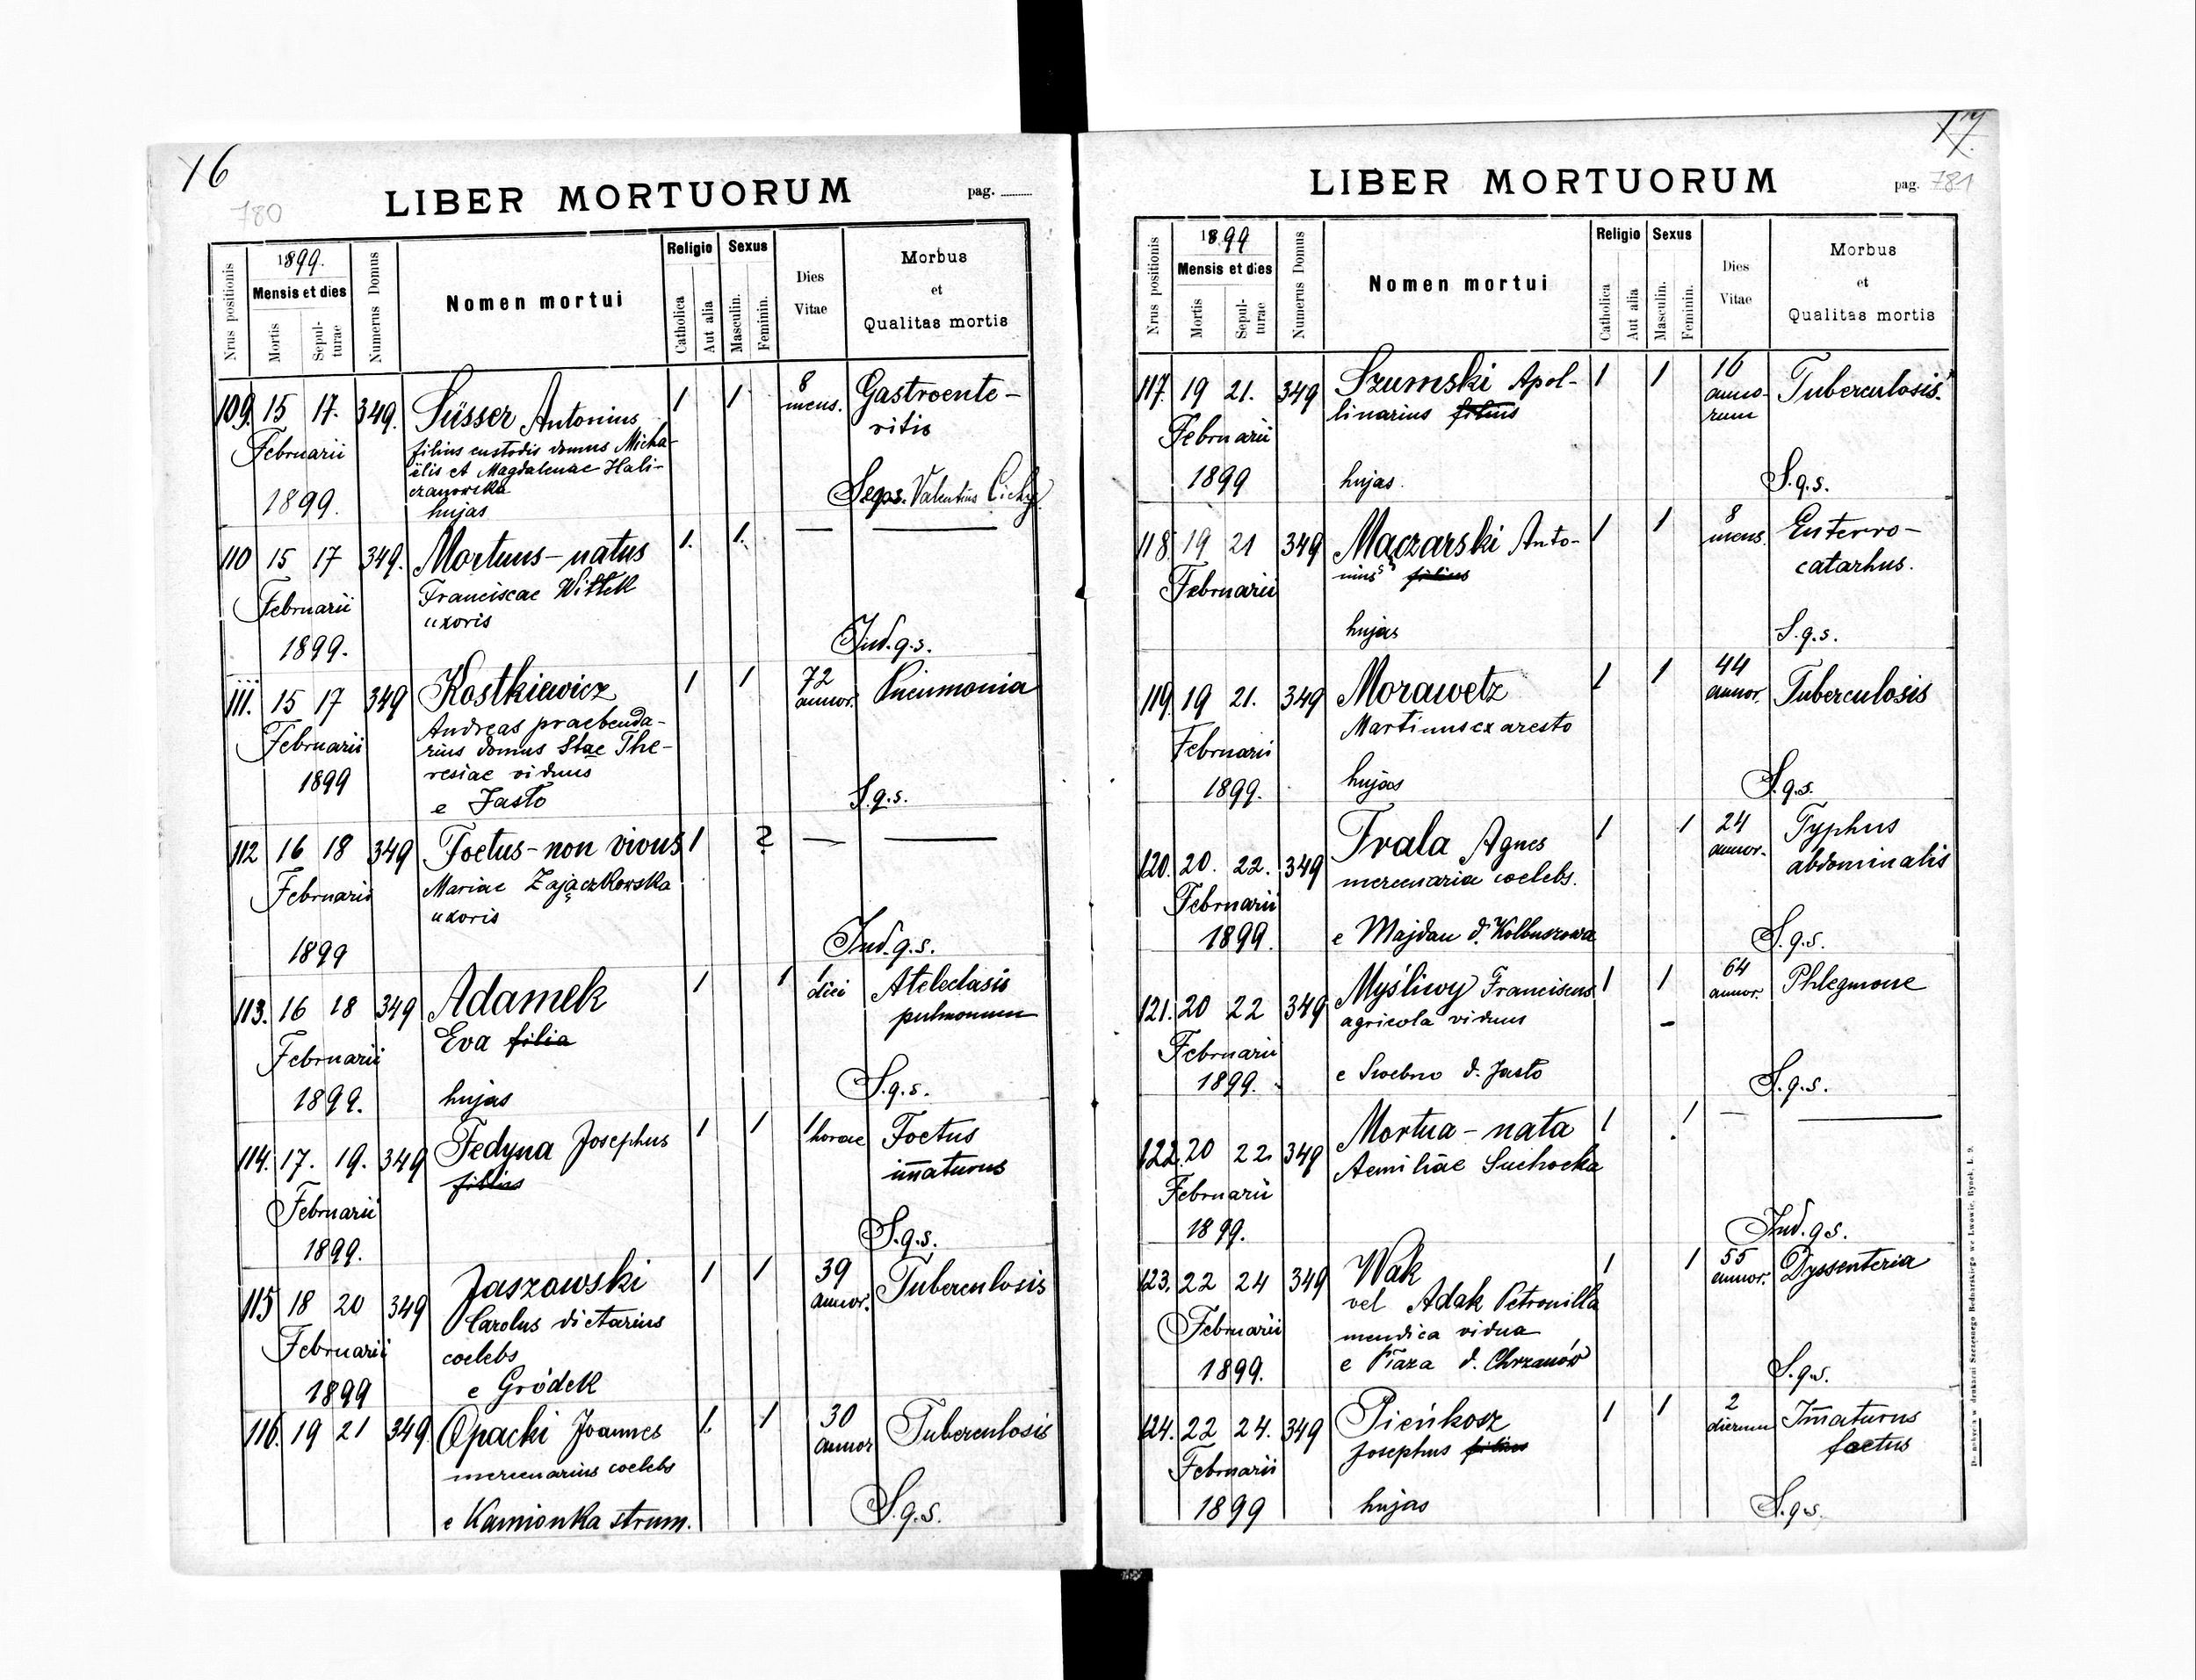 16
780
LIBER MORTUORUM
pag.
Nrus positionis
1899.
Mensis et dies
Mortis
Sepulturae
Numerus Domus
Nomen mortui
Religio
Catholica
Aut alia
Sexus
Masculin.
Feminin.
Dies Vitae
Morbus et Qualitas mortis
109. 15 17. 349. Süsser Antonius 1 1 8 mens. Gastroente-
Februarii filius custodis domus Micha- ritis
ëlis et Magdalenae Hali-
czanowska
1899. hujas Seps. Valentius Cichy
110 15 17 349. Mortuus-natus 1. 1. — —
Februarii Franciscae Wittek
uxoris
1899. Jud.q.s.
111. 15 17 349 Kostkiewicz 1 1 72 annor. Pneumonia
Februarii Andreas praebenda-
rius domus Stae The-
1899 resiae viduus
e Jasło S.q.s.
112 16 18 349 Foetus-non vivus 1 ? — —
Februarii Mariae Zajączkowska
uxoris
1899 Jud.q.s.
113. 16 18 349 Adamek 1 1 1 diei Atelectasis
Februarii Eva filia pulmonum
1899. hujas S.q.s.
114. 17. 19. 349 Fedyna Josephus 1 1 1 horae Foetus
Februarii filius im̄aturus
1899. S.q.s.
115 18 20 349 Jaszowski 1 1 39 annor. Tuberculosis
Februarii Carolus dictarius
coelebs
1899 e Gródek
116. 19 21 349. Opacki Joannes 1. 1 30 annor Tuberculosis
mercenarius coelebs
e Kamionka strum. S.q.s.
17.
LIBER MORTUORUM
pag. 781
Nrus positionis
1899
Mensis et dies
Mortis
Sepulturae
Numerus Domus
Nomen mortui
Religio
Catholica
Aut alia
Sexus
Masculin.
Feminin.
Dies Vitae
Morbus et Qualitas mortis
117. 19 21. 349 Szumski Apol- 1 1 16 anno- Tuberculosis.
Februarii linarius filius rum
1899 hujas. S.q.s.
118. 19 21 349 Mączarski Anto- 1 1 8 mens. Enterro-
Februarii nius filius catarhus.
hujas S.q.s.
119. 19 21. 349 Morawetz 1 1 44 annor. Tuberculosis
Februarii Martinus ex aresto
1899. hujas S.q.s.
120. 20. 22. 349 Trala Agnes 1 1 24 annor. Typhus
Februarii mercenaria coelebs. abdominalis
1899. e Majdan d. Kolbuszowa S.q.s.
121. 20 22 349 Myśliwy Franciscus 1 1 64 annor. Phlegmone
Februarii agricola viduus
1899. e Swebno d. Jasło S.q.s.
122. 20 22. 349 Mortua-nata 1 1 — —
Februarii Aemiliae Suchocka
1899. Jud.q.s.
123. 22 24 349 Wak 1 1 55 annor. Dyssenteria
Februarii vel Adak Petronilla
mendica vidua
1899. e Płaza d. Chrzanów S.q.s.
124. 22 24. 349 Pieńkosz 1 1 2 dierum Im̄aturus
Februarii Josephus filius foetus
1899 hujas S.q.s.
Do nabycia w drukarni Szczęsnego Bednarskiego we Lwowie, Rynek, L. 9.